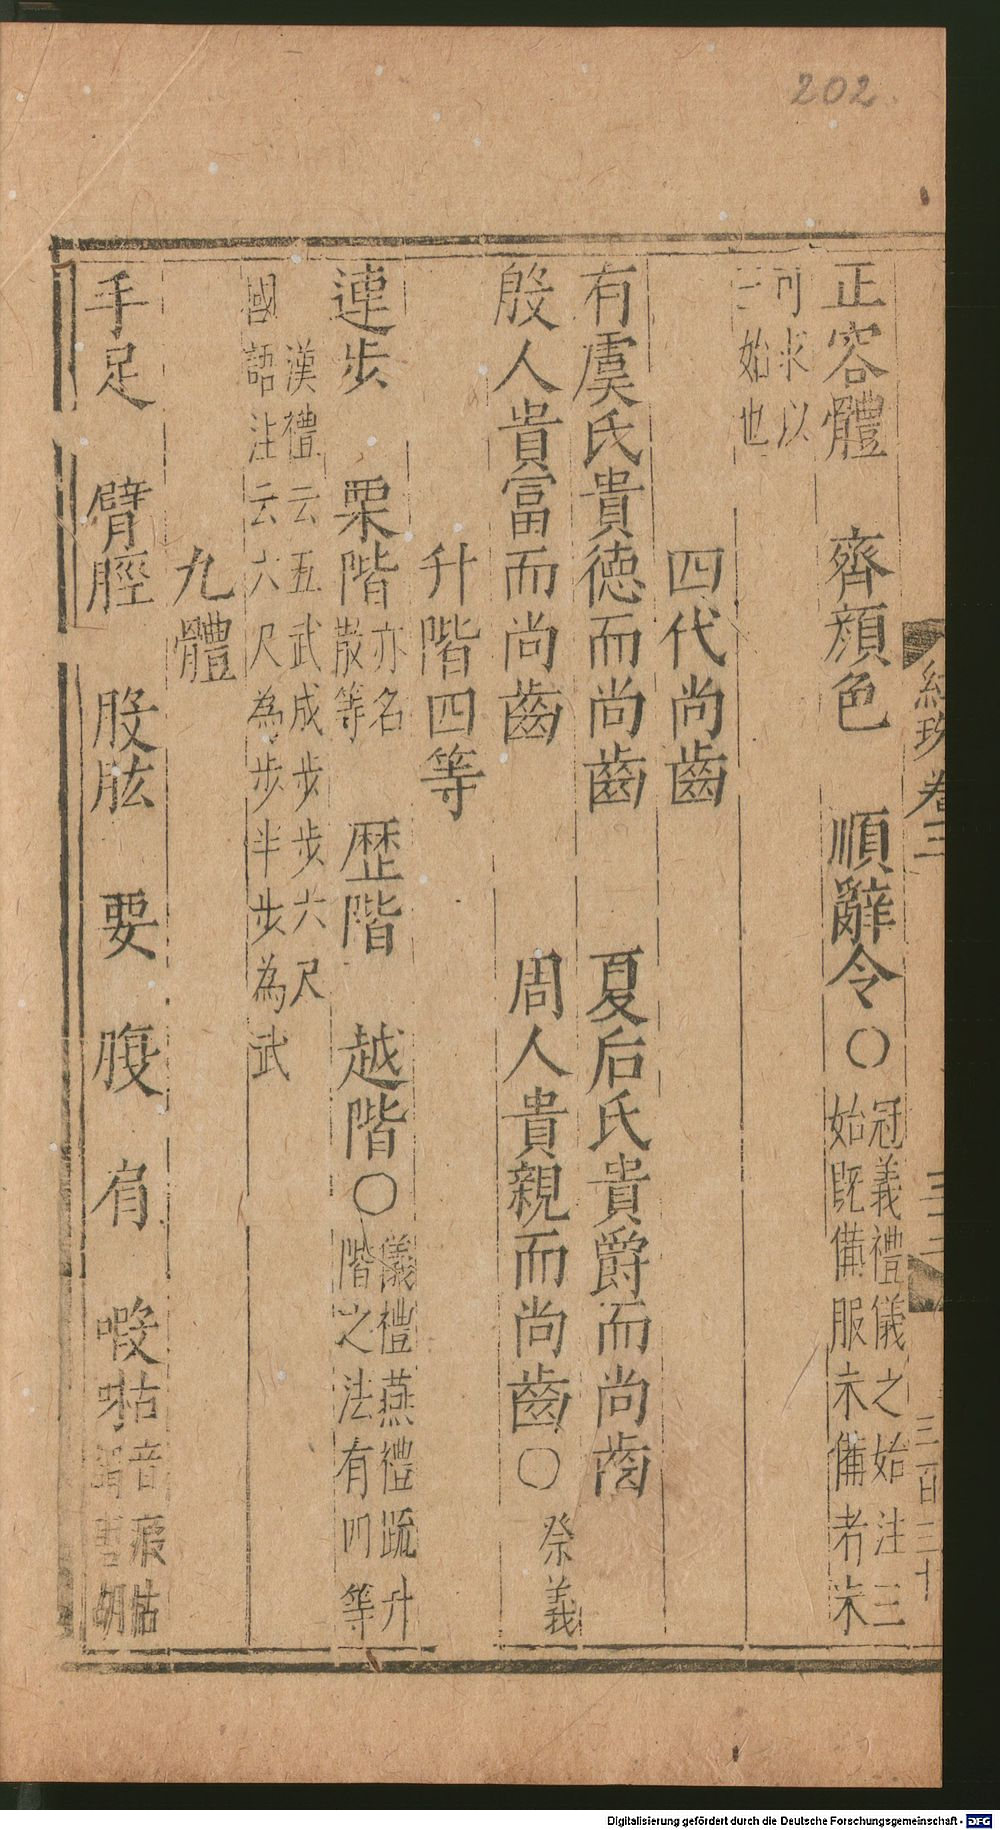 202
經珠卷三
三三
三百三十
正容體　齊顏色　順辭令〇
冠義禮儀之始注三
始既備服未備者未
可求以
三始也
四代尚齒
有虞氏貴德而尚齒　夏后氏貴爵而尚齒
殷人貴富而尚齒　周人貴親而尚齒〇祭義
升階四等
連步　栗階
亦名
散等
歷階　越階〇
儀禮燕禮疏升
階之法有四等
漢禮云五武成步步六尺
國語注云六尺為步半步為武
九體
手足　臂脛　股肱　要　腹　肩
音瘕
胡
Digitalisierung gefördert durch die Deutsche Forschungsgemeinschaft - DFG